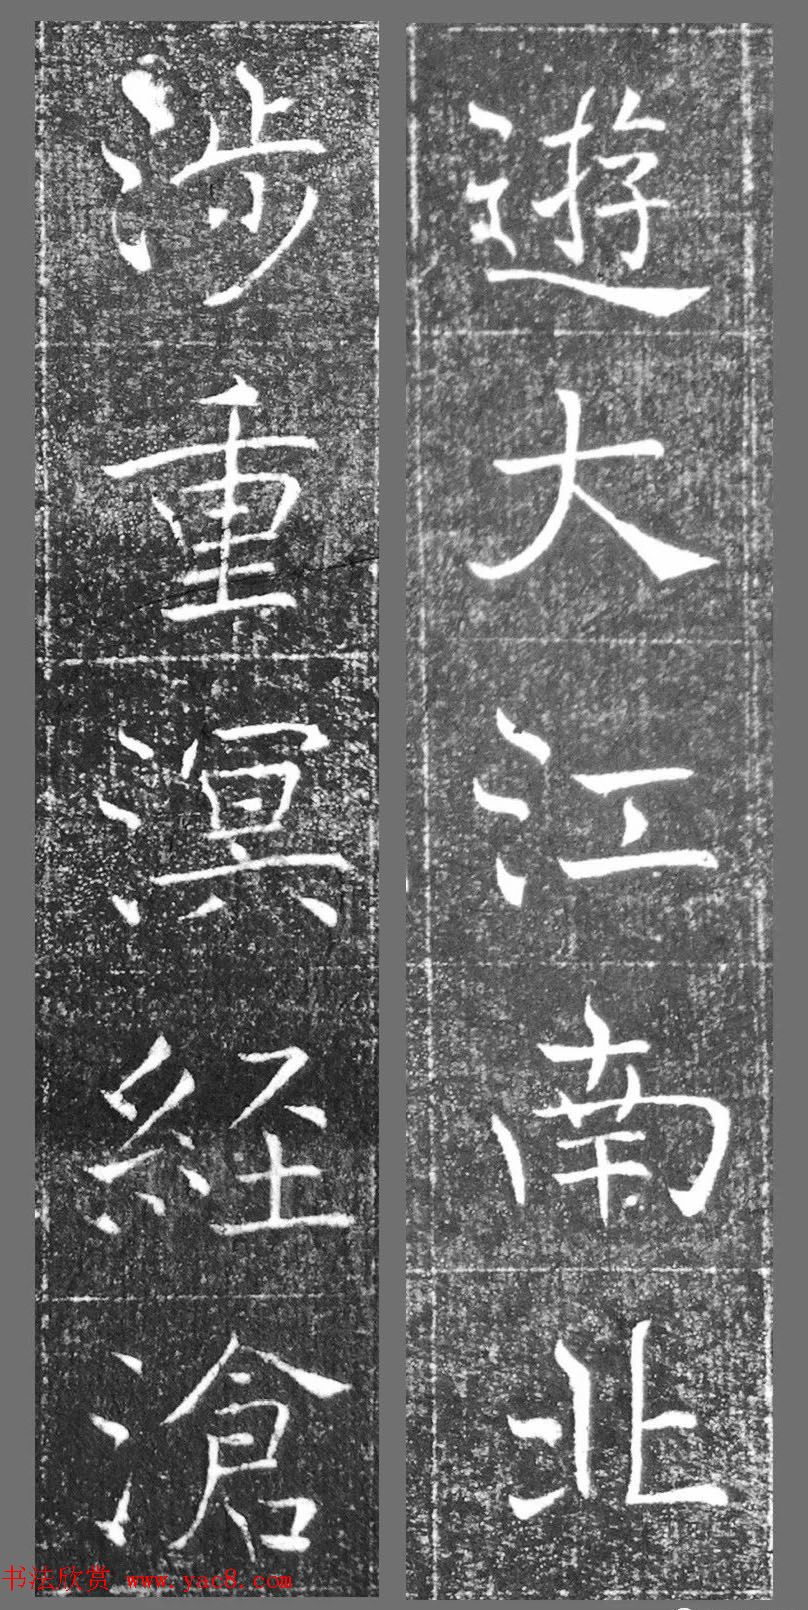 遊大江南北
涉重溟経滄
书法欣赏 www.yac8.com